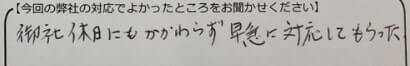 【今回の弊社の対応でよかったところをお聞かせください】
御社休日にもかかわらず早急に対応してもらった。